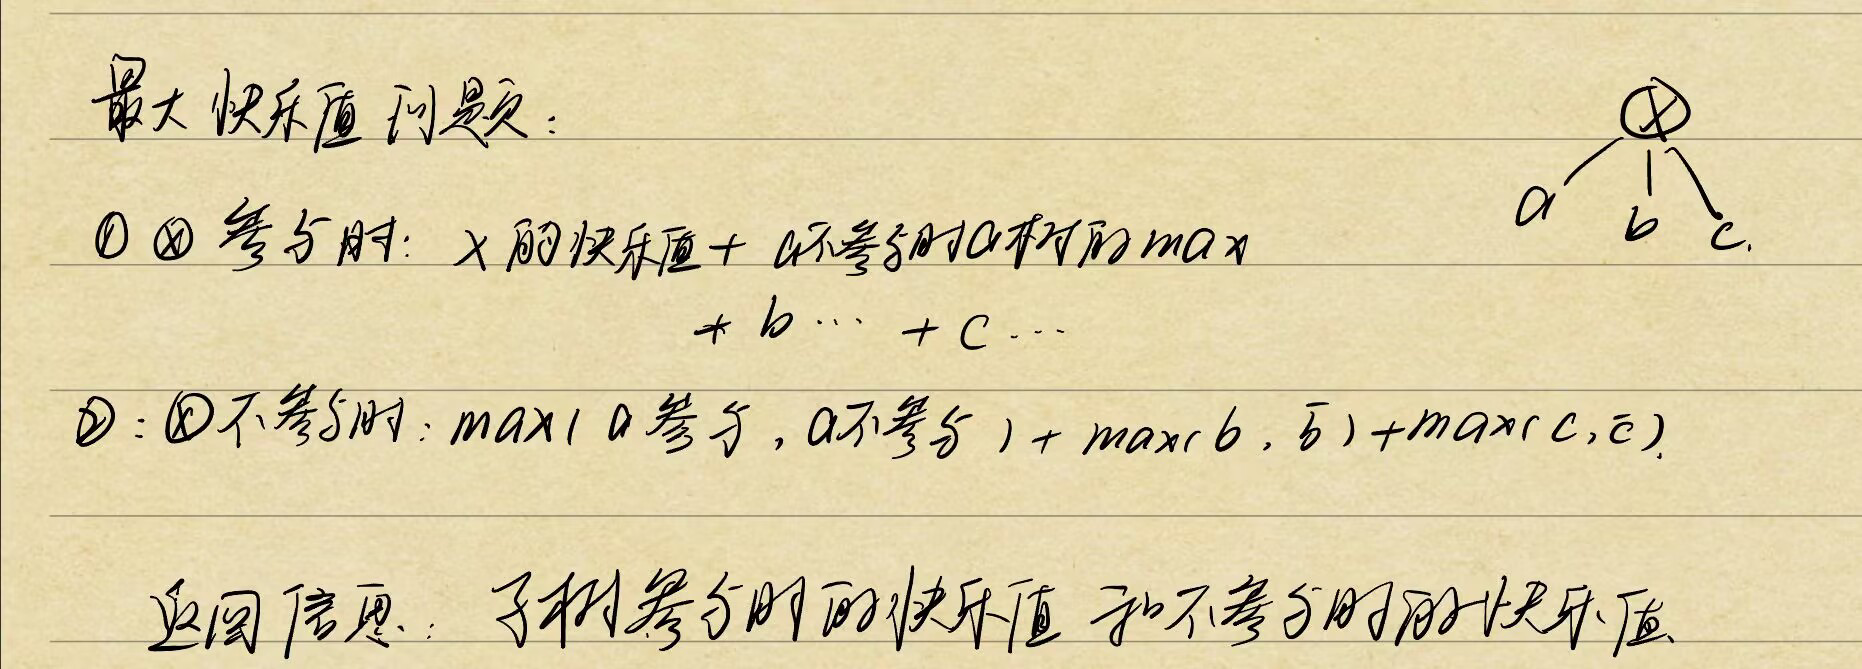 最大快乐值问题:
X
a
b
c.
① Ⓧ 参与时: X的快乐值+ a不参与时a树的max
+ b … + c …
②: Ⓧ不参与时: max( a参与, a不参与 ) + max( b, b̄ ) + max( c, c̄ ).
返回信息: 子树参与时的快乐值和不参与时的快乐值.